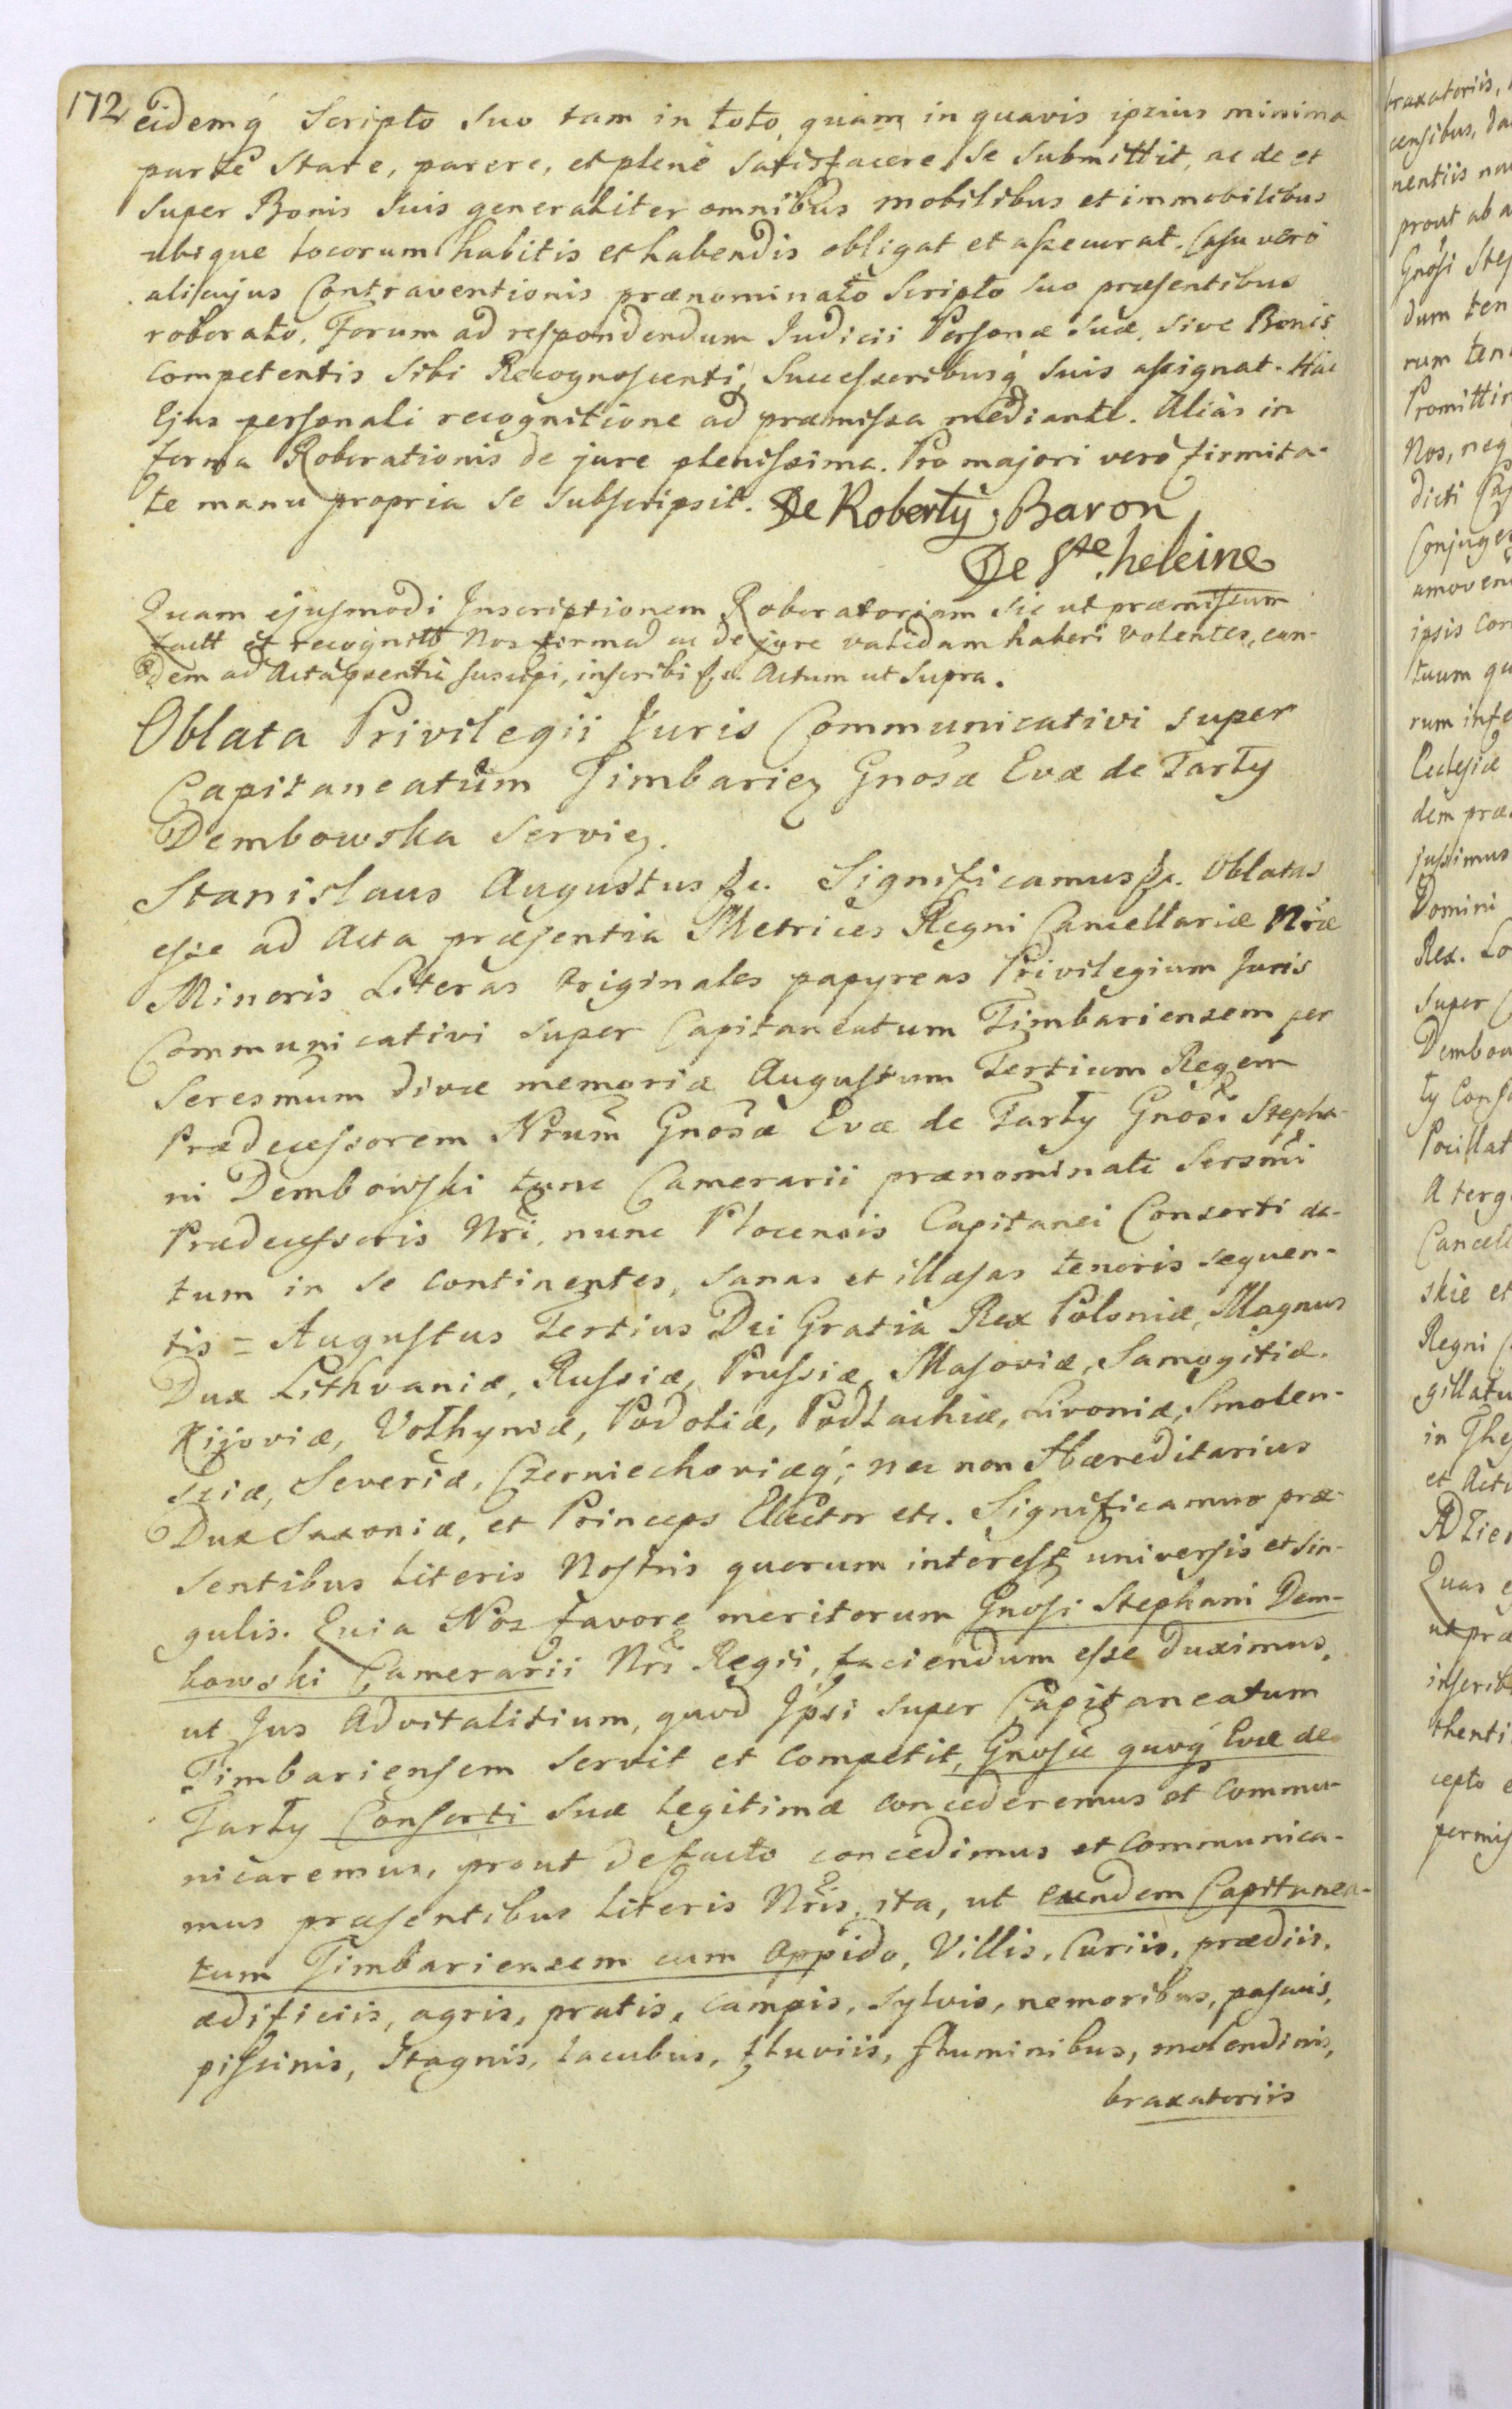 172
eidemq́ Scripto suo tam in toto, quam in quavis ipsius minima
parte stare, parere, et plenè satisfacere se submittit, ac de et
super Bonis suis generaliter omnibus mobilibus et immobilibus
ubique locorum habitis et habendis obligat et assecurat. Casu verò
alicujus Contraventionis prænominato Scripto suo præsentibus
roborato, Forum ad respondendum Judicii Personæ suæ, sive Bonis
competentis sibi Recognoscenti, Successoribusq́ suis assignat. Hac
Ejus personali recognitione ad præmissa mediante. Aliàs in
forma Roborationis de jure plenissima. Pro majori verò firmita-
te manu propria se subscripsit. De Roberty, Baron
De Ste. heleine
Quam ejusmodi Inscriptionem Roboratoriam sic ut præmissum
factt et recognitt Nos firmad ac de jure validam haberi volentes, ean-
dem ad Acta psentia suscipi, inscribi &c. Actum ut Supra.
Oblata Privilegii Juris Communicativi super
Capitaneatum Timbarien Gnosæ Evæ de Tarły
Dembowska Servien.
Stanislaus Augustus &c. Significamus &c. Oblatas
esse ad Acta præsentia Metrices Regni Cancellariæ Nræ
Minoris Literas Originales papyreas Privilegium Juris
Communicativi super Capitaneatum Timbariensem per
Seresmum divæ memoriæ Augustum Tertium Regem
Prædecessorem Nrum Gnosæ Evæ de Tarły Gnosi Stepha-
ni Dembowski tunc Camerarii prænominati Seresmi
Prædecessoris Nri, nunc Plocensis Capitanei Consorti da-
tum in se continentes, sanas et illæsas tenoris sequen-
tis = Augustus Tertius Dei Gratia Rex Poloniæ, Magnus
Dux Lithvaniæ, Russiæ, Prussiæ, Masoviæ, Samogitiæ,
Kijoviæ, Volhyniæ, Podoliæ, Podlachiæ, Livoniæ, Smolen-
sciæ, Severiæ, Czerniechoviæq́; nec non Hæreditarius
Dux Saxoniæ, et Princeps Elector etc. Significamus præ-
sentibus Literis Nostris quorum interest, universis et sin-
gulis. Quia Nos favore meritorum Gnosi Stephani Dem-
bowski Camerarii Nri Regii, faciendum esse duximus,
ut Jus Advitalitium, quod Ipsi super Capitaneatum
Timbariensem servit et competit, Gnosæ quoq́ Evæ de
Tarły Consorti suæ legitimæ concederemus et commu-
nicaremus, prout de facto concedimus et communica-
mus præsentibus Literis Nris, ita, ut eundem Capitanea-
tum Timbariensem cum Oppido, Villis, Curiis, prædiis,
ædificiis, agris, pratis, campis, sylvis, nemoribus, pascuis,
piscinis, Stagnis, lacubus, fluviis, fluminibus, molendinis,
braxatoriis
braxatoriis,
censibus, da
nentiis
prout ab a
Gnosi Step
dum ten
rum ten
Promittim
Nos, neq
dicti Cap
Conjuges
amoven
ipsis con
tuum qu
rum inte
Ecclesiæ
dem præ
jussimus
Domini
Rex. Lo
super C
Dembow
ły Conso
Pocillat
A terg
Cancell
skie et
Regni C
gillatu
in The
et Actu
Quas e
ut præ
inscrib
thenti
cepto e
permis